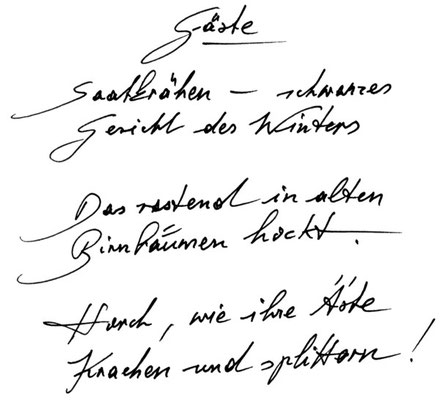 Gäste
Saatkrähen – schwarzes
Gericht des Winters
Das rastend in alten
Birnbäumen hockt.
Horch, wie ihre Äste
Krachen und splittern!